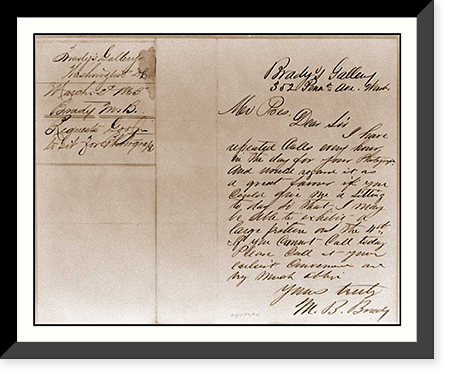 Brady's Gallery
Washington D.C.
March 2d 1865
Brady M.B.
Requests Lordy
to sit for Photograph
Brady's Gallery
352 Penn. Ave. Wash.
Mr Pres.
Dear Sir
I have
repeated calls every hour
in the day for your Photograph
And would regard it as
a great favor if you
Could give me a sitting
to day so that I may
be Able to exhibit a
large picture on the 4th.
If you Cannot Call today
Please Call at your
earliest Convenience and
very much oblige
Yours truly
M. B. Brady